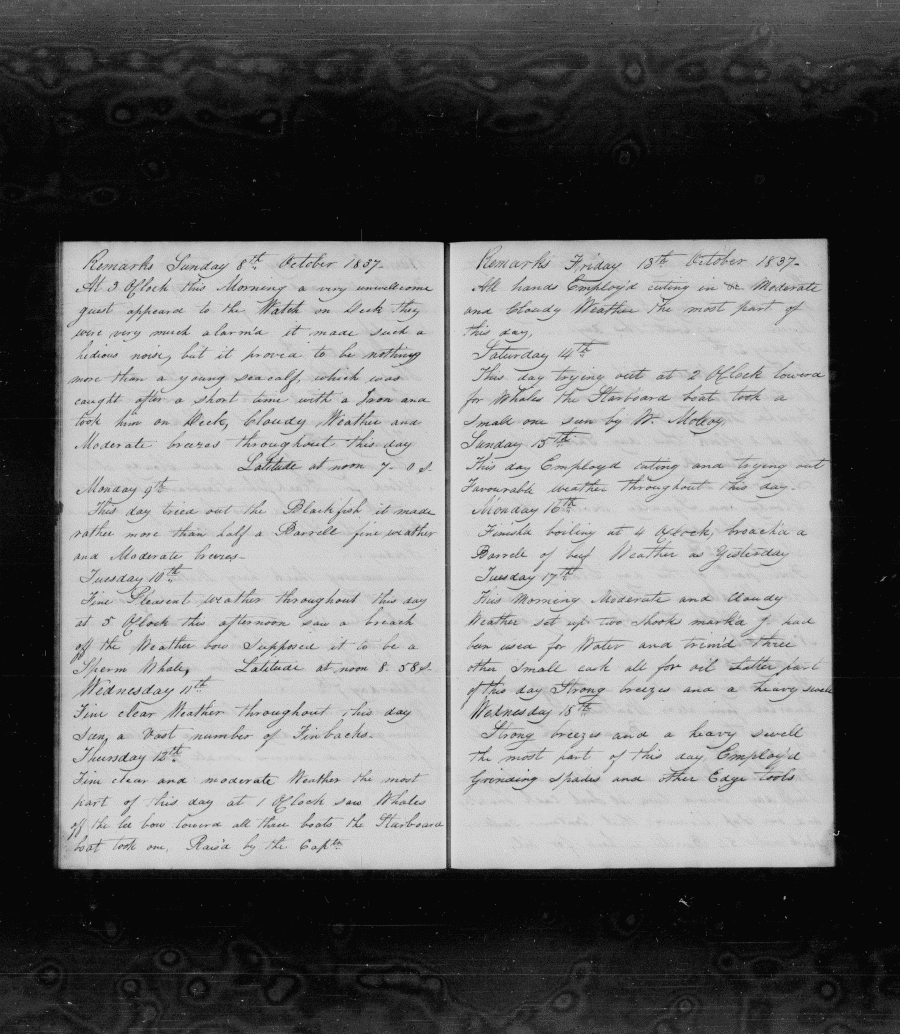 Remarks Sunday 8th October 1837-
At 3 OClock this Morning a very unwellcome
guest appeard to the Watch on Deck they
were very much alarm'd it made such a
hedious noise, but it proved to be nothing
more than a young sea calf, which was
caught after a short time with a Iron and
took him on Deck, Cloudy Weather and
Moderate breezes throughout this day
Latitude at noon 7- 0 S.
Monday 9th
This day tried out the Blackfish it made
rather more than half a Barrell fine weather
and Moderate breezes-
Tuesday 10th
Fine Pleasent weather throughout this day
at 5 OClock this afternoon saw a breach
off the Weather bow Supposed it to be a
Sperm Whale, Latitude at noon 8. 58 S.
Wednesday 11th
Fine clear Weather throughout this day
Saw, a vast number of Finbacks-
Thursday 12th
Fine clear and moderate Weather the most
part of this day at 1 OClock saw Whales
off the lee bow lowerd all three boats the Starboard
boat took one. Rais'd by the Captn
Remarks Friday 13th October 1837-
All hands Employ'd cuting in & Moderate
and Cloudy Weather the most part of
this day.
Saturday 14th
This day trying out at 2 OClock lowerd
for Whales the Starboard boat took a
Small one seen by W.
Sunday 15th
This day Employ'd cuting and trying out
Favourable weather throughout this day-
Monday 16th
Finishd boiling at 4 OClock, broach'd a
Barrell of beef Weather as Yesterday
Tuesday 17th
This Morning Moderate and Cloudy
Weather set up two Shooks markd J. had
been used for Water and trim'd three
other Small cask all for oil Latter part
of this day Strong breezes and a heavy swell
Wednesday 18th
Strong breezes and a heavy swell
the most part of this day Employ'd
Grinding Spades and Other Edge tools